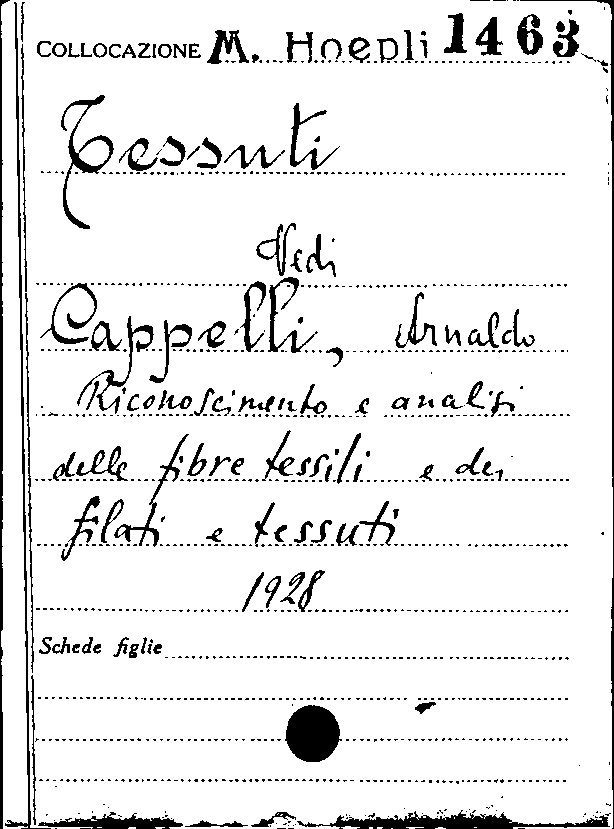 COLLOCAZIONE M. Hoepli 1463
Tessuti
Vedi
Cappelli, Arnaldo
Riconoscimento e analisi
delle fibre tessili e dei
filati e tessuti
1928
Schede figlie